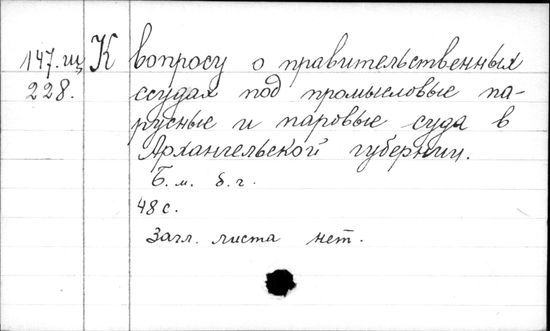 147.щ К вопросу о правительственных
228. ссудах под промысловые па-
русные и паровые суда в
Архангельской губернии.
Б. м. б. г.
48 с.
Загл. листа нет.